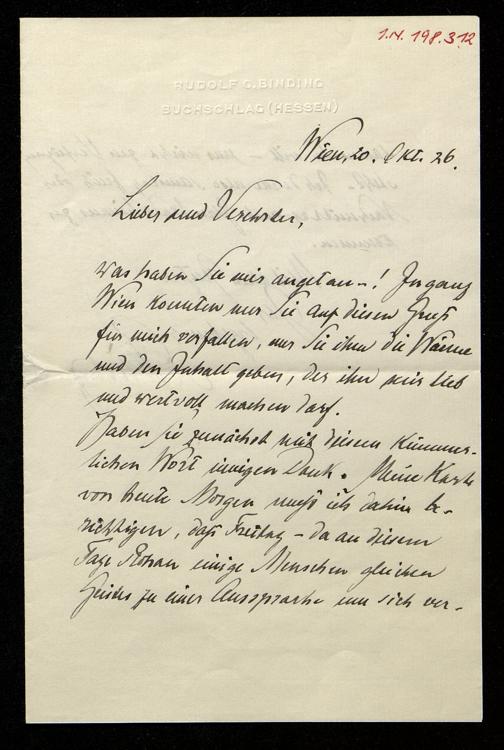 I.N. 198.312
RUDOLF G. BINDING
BUCHSCHLAG (HESSEN)
Wien, 20. Okt. 26.
Lieber und Verehrter,
was haben Sie mir angetan –! In ganz
Wien konnten nur Sie auf diesen Gruß
für mich verfallen, nur Sie ihm die Wärme
und den Inhalt geben, der ihn mir lieb
und wertvoll machen darf.
Haben Sie zunächst mit diesem kümmer-
lichen Wort innigen Dank. Meine Karte
von heute Morgen muß ich dahin be-
richtigen, daß Freitag – da an diesem
Tage Rohan einige Menschen gleichen
Geistes zu einer Aussprache um sich ver-